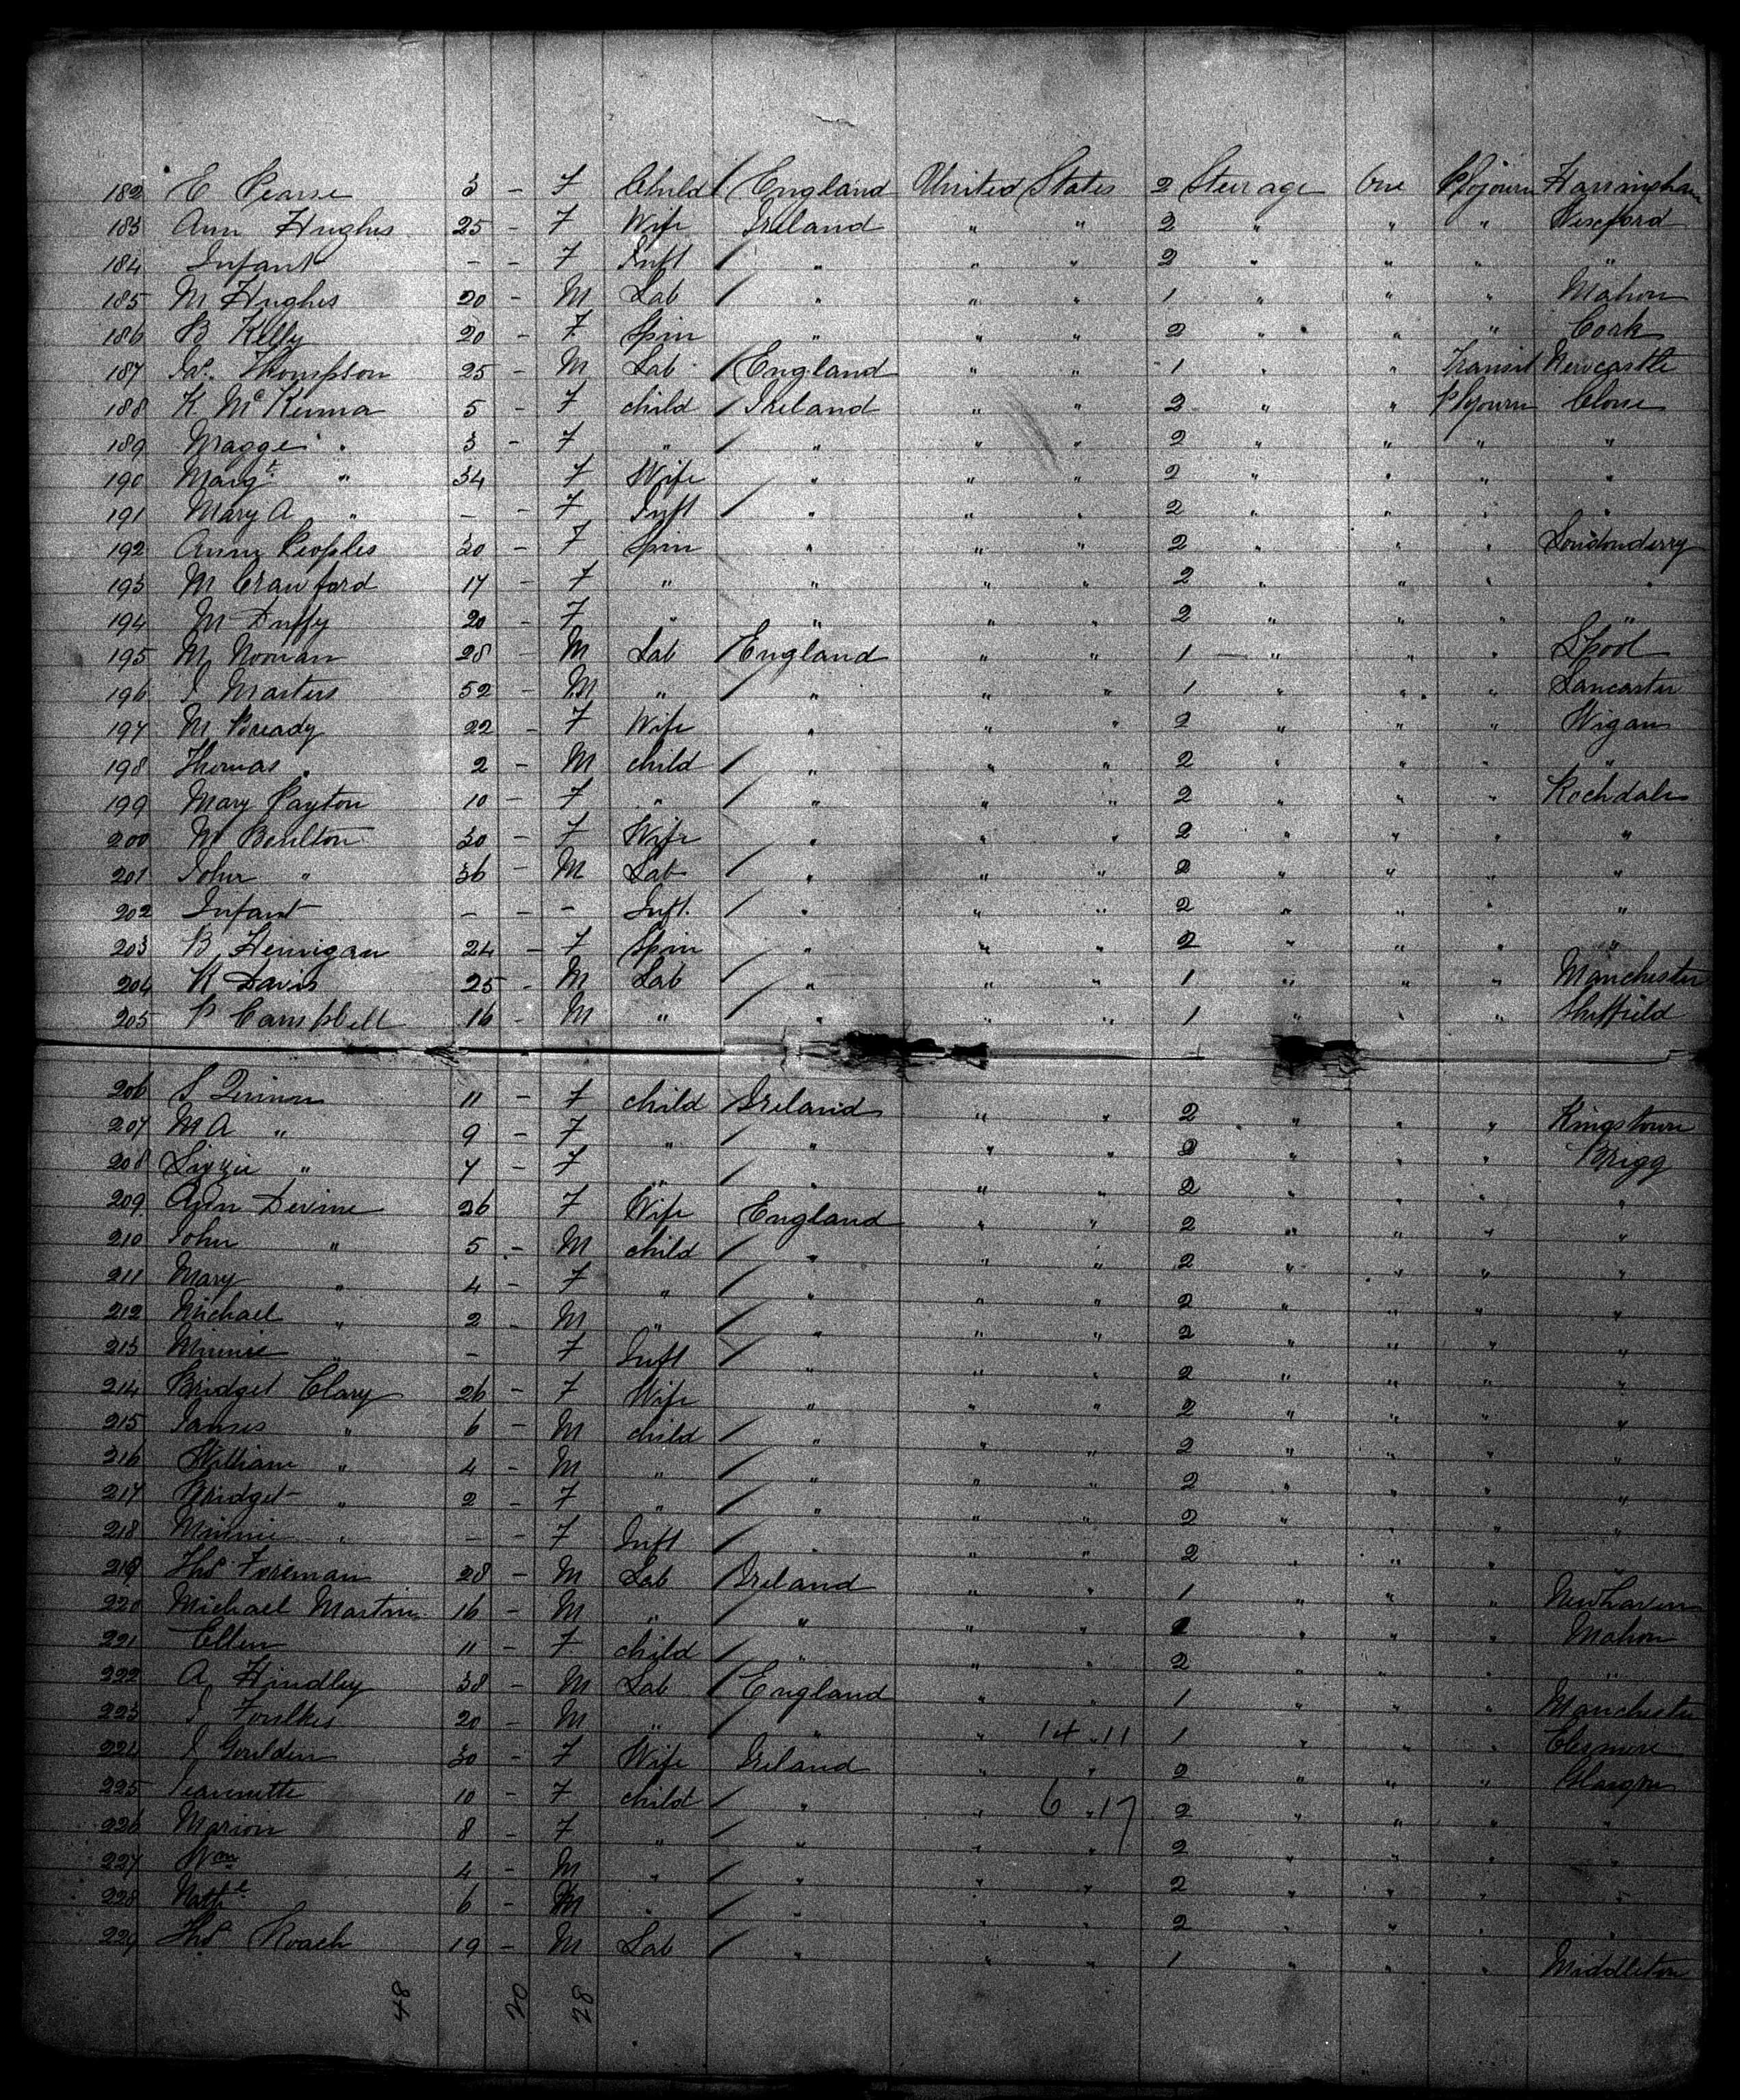 182 E Pearse 3 - F Child England United States 2 Steerage One P Sojourn
183 Ann Hughes 25 - F Wife Ireland " " 2 " " " Wexford
184 Infant - - F Inft " " " 2 " " " "
185 M Hughes 20 - M Lab " " " 1 " " " Mahon
186 B Kelly 20 - F Spin " " " 2 " " " Cork
187 Thompson 25 - M Lab England " " 1 " " Transit Newcastle
188 K McKenna 5 - F child Ireland " " 2 " " P Sojourn Clone
189 Magge " 3 - F " " " " 2 " " " "
190 Margt " 34 F Wife " " " 2 " " " "
191 Mary A " - - F Inft " " " 2 " " " "
192 Annie Peoples 30 - F Spin " " " 2 " " " Londonderry
193 M Crawford 17 - F " " " " 2 " " " "
194 M Duffy 20 - F " " " " 2 " " " "
195 M Noonan 28 - M Lab England " " 1 " " " Lpool
196 J Masters 52 - M " " " " 1 " " " Lancaster
197 M Bready 22 - F Wife " " " 2 " " " Wigan
198 Thomas " 2 - M child " " " 2 " " " "
199 Mary Payton 10 - F " " " " 2 " " " Rochdale
200 M Boulton 30 - F Wife " " " 2 " " " "
201 John " 36 - M Lab " " " 2 " " " "
202 Infant - - - Inft. " " " 2 " " " "
203 B Hennigan 24 - F Spin " " " 2 " " " "
204 R Davis 25 - M Lab " " " 1 " " " Manchester
205 P Campbell 16 - M " " " " 1 " " " Sheffield
206 S 11 - F child Ireland " " 2 " " " Kingstown
207 M A " 9 - F " " " " 2 " " " Brigg
208 Lizzie " 7 - F " " " " 2 " " " "
209 Ann Devine 26 F Wife England " " 2 " " " "
210 John " 5 - M child " " " 2 " " " "
211 Mary " 4 - F " " " " 2 " " " "
212 Michael " 2 - M " " " " 2 " " " "
213 Minnie " - F Inft " " " 2 " " " "
214 Bridget Clary 26 - F Wife " " " 2 " " " "
215 James " 6 - M child " " " 2 " " " "
216 William " 4 - M " " " " 2 " " " "
217 Bridget " 2 - F " " " " 2 " " " "
218 Minnie " - - F Inft " " " 2 " " " "
219 Thos Foreman 28 - M Lab Ireland " " 1 " " " Newhaven
220 Michael Martin 16 - M " " " " " " " Mahon
221 Ellen 11 - F child " " " 2 " " " "
222 A Hindley 38 - M Lab England " " 1 " " " Manchester
223 J Foulkes 20 - M " " " 14 " 11 1 " " "
224 J Goulden 30 - F Wife Ireland " " 2 " " " Glasgow
225 Jeannette 10 - F child " " 6 " 17 2 " " " "
226 Marion 8 - F " " " " 2 " " " "
227 Wm 4 - M " " " " 2 " " " "
228 6 - M " " " " 2 " " " "
229 Thos Roach 19 - M Lab " " " 1 " " " Middleton
48 20 28